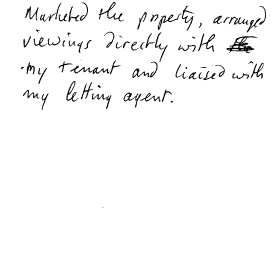 Marketed the property, arranged
viewings directly with
my tenant and liaised with
my letting agent.